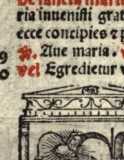 ria inuenisti grat
ecce concipies z p
Aue maria.
vel Egredietur v